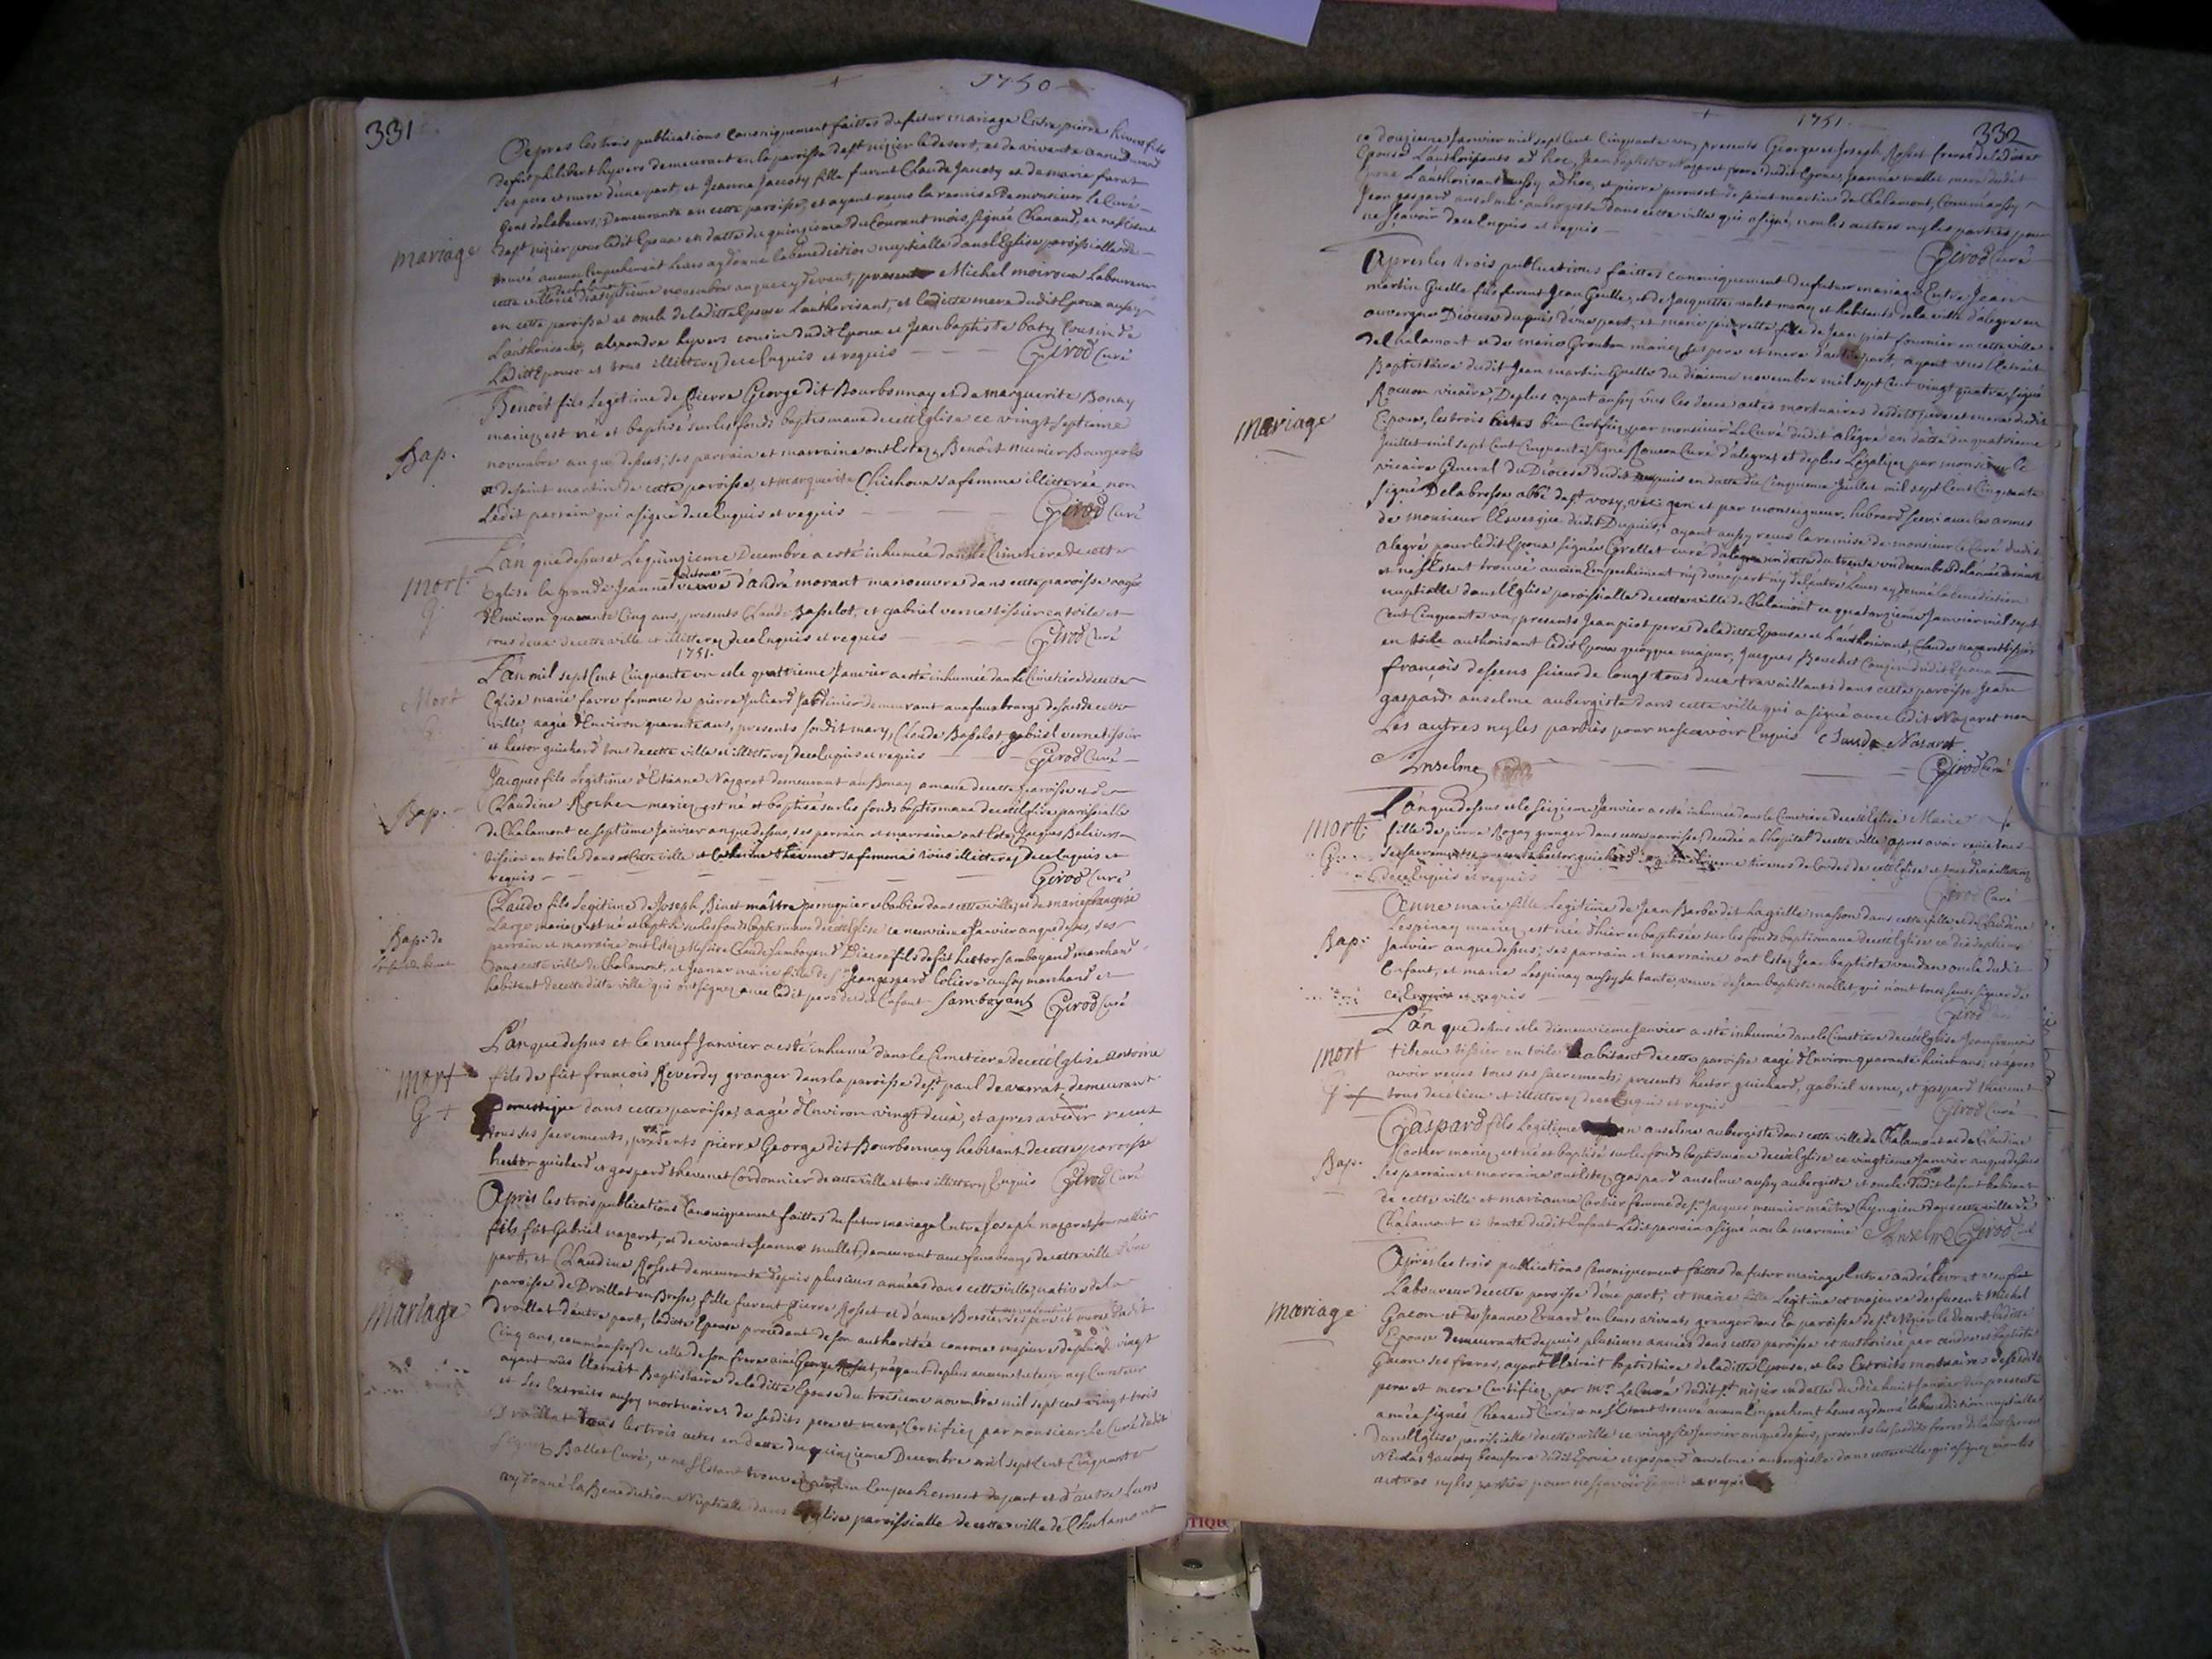 1750
331
Apres les trois publications canoniquement faittes du futur mariage Entre pierre hivers fils
de feu philibert hyvers demeurant en la paroisse de st nizier le desert, et de vivante
ses pere et mere d'une part et Jeanne Jacoty fille furent Claude Jacoty et de marie farat
Gens de labeurs, Demeurante en cette paroisse, et ayant reçus la remise de monsieur Le Curé
de st nizier pour ledit Epoux en datte du quinzieme du Courant mois, signée Chanaud, et ne s'Estant
mariage
trouvé aucun Empechement Leurs ay donné la benediction nuptialle dans l'Eglise paroissialle de
cette ville ce dixseptieme novembre an que cy devant, presents Michel moiroux Laboureur
en cette paroisse et oncle de laditte Epouse L'authorisant, et laditte mere dudit Epoux aussy
L'authorisant, alexandre hyvers cousin dudit Epoux et Jean baptiste baty Cousin de
Laditte Epouse et tous illitterez de ce Enquis et requis Girod Curé
Benoit fils Legitime de Pierre George dit Bourbonnay et de marguerite Bonay
mariez est né et baptisé sur les fonds baptismaux de cett Eglise ce vingt septieme
Bap.
novembre an que dessus; ses parrain et marraine ont Estez Benoit munier Bourgeois
de saint martin de cette paroisse, et marguerite Chichoux sa femme illitterée non
Ledit parrain qui a signé de ce Enquis et requis Girod Curé
L'an que dessus et Le quinzieme Decembre a esté inhumée dans le Cimetiere de cette
mort
G
Eglise la grande Jeanne veuve d'andré morant manoeuvre dans cette paroisse aagée
d'Environ quarante Cinq ans, presents Claude Basselot, et gabriel verne tissier en toile et
tous deux de cette ville et illitterez de ce Enquis et requis Girod Curé
1751.
L'an mil sept Cent Cinquante un et le quatrieme Janvier a esté inhumée dans le Cimetiere de cette
Mort
Eglise marie favre femme de pierre Juliard Jardinier demeurant aux fauxbourgs dessus de cette
ville, aagée d'Environ quarante ans, presents sondit mary, Claude Basselot, gabriel verne tissier
et hector guichard tous de cette ville et illitterez de ce Enquis et requis Girod Curé
Jacques fils Legitime d'Etienne Nazaret demeurant au Bonay amaux de cette paroisse et de
Bap.
Claudine Rocher mariez est né et baptisé sur les fonds baptismaux de cett Eglise paroissialle
de Chalamont ce septieme Janvier an que dessus, ses parrain et marraine ont Estez Jacques
tissier en toile dans cette ville et Catherine thevenet sa femme tous illitterez de ce Enquis et
requis Girod Curé
Claude fils Legitime de Joseph Binet maître perruquier et barbier dans cette ville, et de marie françoise
Large mariez est né et baptisé sur les fonds baptismaux de cett Eglise ce neuvieme Janvier an que dessus, ses
Bap: de
parrain et marraine ont Estez Messire Claude Samboyand Diacre fils de fût hector Samboyand marchand
dans cette ville de Chalamont, et Jeanne marie fille de sr Jean gaspard Coliera aussy marchand et
habitant de cette ditte ville qui ont signez avec ledit pere dudit Enfant Samboyant Girod Curé
L'an que dessus et le neuf Janvier a esté inhumé dans le Cimetiere de cett Eglise antoine
mort
G +
fils de fût francois Reverdy granger dans la paroisse de st paul de varrax demeurant
Domestique dans cette paroisse, aagé d'Environ vingt deux, et apres avoir reçus
tous ses sacrements, presents pierre George dit Bourbonnay habitant de cette paroisse
hector guichard et gaspard thevenet Cordonnier de cette ville et tous illitterez Enquis Girod Curé
Après les trois publications Canoniquement faittes du futur mariage Entre Joseph nazaret Journallier
fils fût Gabriel nazaret, et de vivante Jeanne mullet, demeurant aux fauxbourgs de cette ville d'une
part, et Claudine Rosset demeurante depuis plusieurs années dans cette ville, native de la
paroisse de Droillat en Bresse, fille furent Pierre Rosset et d'anne Bressier ses pere et mere dudit
mariage
Droillat d'autre part, laditte Epouse procedant de son authorité comme majeure de plus de vingt
Cinq ans, comm'aussy de celle de son frere ainé George Rosset, n'ayant de plus aucun tuteur ny Curateur
ayant vûs l'Extrait Baptistaire de laditte Epouse du troisieme novembre mil sept cent vingt trois
et les Extraits aussy mortuaires de sesdits pere et mere, Certifiez par monsieur Le Curé dudit
Droillat tous les trois actes en datte du quinzieme Decembre mil sept Cent Cinquante
signez Ballet Curé, et ne s'Estant trouvé aucun Empechement de part et d'autre Leurs
ay donné la Benediction Nuptialle dans l'Eglise paroissialle de cette ville de Chalamont
1751.
332
ce douzieme Janvier mil sept Cent Cinquante un, presents George et Joseph Rosset freres de laditte
Epouse L'authorisants ad hoc, Jean baptiste Nazaret frere dudit Epoux, Jeanne mullet mere dudit
Epoux L'authorisant aussy ad hoc, et pierre perruset de saint martin de Chalamont, Comm'aussy
Jean gaspard anselme aubergiste dans cette ville qui a signé, non les autres ny les parties pour
ne sçavoir de ce Enquis et requis
Girod Curé
Apres les trois publications faittes canoniquement du futur mariage Entre Jean
martin Guelle fils furent Jean Guelle, et de Jacquette valet mariez et habitants de la ville d'alegre en
auvergne Diocese du puis d'une part, et marie pierrette fille de Jean piat fournier en cette ville
de Chalamont et de marie Groubon mariez ses pere et mere d'autre part, ayant vûs l'Extrait
Baptistaire dudit Jean martin Guelle du dixieme novembre mil sept Cent vingt quatre signé
Rouxon vicaire, De plus ayant aussy vûs les deux actes mortuaires desdits pere et mere dudit
mariage
Epoux, les trois actes bien Certifiez par monsieur Le Curé dudit alegre en datte du quatrieme
Juillet mil sept Cent Cinquante, signé Rouxon Curé d'alegre, et de plus Légalisez par monsieur le
vicaire General du Diocese dudit Dupuis en datte du Cinquieme Juillet mil sept Cent Cinquante
signé Delabrosse abbé de st vosy, vic: gen et par monseigneur. hubrard secre: avec les armes
de monsieur l'Evesque dudit Dupuis; ayant aussy reçus la remise de monsieur le Curé dudit
alegre pour ledit Epoux signée Grellet curé d'alegre en datte du trente un decembre de l'année derniere
et ne s'Estant trouvé aucun Empechement ny d'une part ny de l'autre Leurs ay donné la benediction
nuptialle dans l'Eglise paroissialle de cette ville de Chalamont ce quatorzieme Janvier mil sept
Cent Cinquante un, presents Jean piat pere de laditte Epouse et L'authorisant, Claude nazaret tissier
en toile authorisant ledit Epoux quoyque majeur, Jacques Bouchet Cousin dudit Epoux
françois dessens sieur de long tous deux travaillants dans cette paroisse Jean
gaspard anselme aubergiste dans cette ville qui a signé avec ledit Nazaret non
Les autres ny les parties pour ne sçavoir Enquis Claude Nazaret
Anselme Girod Curé
L'an que dessus et le seizieme Janvier a esté inhumée dans le Cimetiere de cett Eglise Marie
mort:
G
fille de pierre Rozay granger dans cette paroisse, decedée a l'hopital de cette ville apres avoir reçue tous
ses sacrements, presents hector guichard et gabriel verne tireurs de Cordes de cett Eglise et tous deux illitterez
de ce Enquis et requis Girod Curé
Anne marie fille Legitime de Jean Barbe dit Lagille masson dans cette ville et de Claudine
Lespinay mariez est née d'hier et baptisée sur les fonds baptismaux de cett Eglise ce dix septieme
Bap:
Janvier an que dessus; ses parrain et marraine ont Estez Jean baptiste vandan oncle dudit
Enfant, et marie Lespinay aussy sa tante, veuve de Jean baptiste mallet, qui n'ont tous sçeus signer de
ce Enquis et requis
Girod Curé
L'an que dessus et le dixneuvieme Janvier a esté inhumé dans le Cimetiere de cett Eglise Jean francois
mort
G +
tibeau tissier en toile habitant de cette paroisse aagé d'Environ quarante huict ans, et apres
avoir reçus tous ses sacrements; presents hector guichard, gabriel verne, et gaspard thevenet
tous de ce lieu et illitterez de ce Enquis et requis Girod Curé
Gaspard fils Legitime anselme aubergiste dans cette ville de Chalamont et de Claudine
Bap.
Rocher mariez est né et baptisé sur les fonds baptismaux de cett Eglise ce vingtieme Janvier an que dessus
ses parrain et marraine ont Estez gaspard anselme aussy aubergiste et oncle dudit Enfant habitant
de cette ville et marianne Cartier femme de sr Jacques meunier maître Chyrugien dans cette ville de
Chalamont et tante dudit Enfant Ledit parrain a signé non la marraine Anselme Girod Curé
Après les trois publications Canoniquement faittes du futur mariage Entre andré Levrat veuf
Laboureur de cette paroisse d'une part; et marie fille Legitime et majeure de furent Michel
mariage
Gacon et de Jeanne Evrard en leurs vivants granger dans la paroisse de st Nizier le desert, laditte
Epouse demeurante depuis plusieurs années dans cette paroisse et authorisée par andré et baptiste
Gacon ses freres, ayant vûs l'Extrait baptistaire de laditte Epouse, et les Extraits mortuaires de sesdits
pere et mere Certifiez par mr. Le Curé dudit st nizier en datte du dix huit Janvier de la presente
année signés Chanaud Curé, et ne s'Estant trouvé aucun Empechement Leurs ay donné la benediction nuptialle
dans l'Eglise paroissialle de cette ville ce vingt six Janvier an que dessus, presents les susdits freres de laditte Epouse
Nicolas Jacoty beaufrere dudit Epoux et gaspard anselme aubergiste dans cette ville qui a signez non les
autres ny les parties pour ne sçavoir Enquis et requis